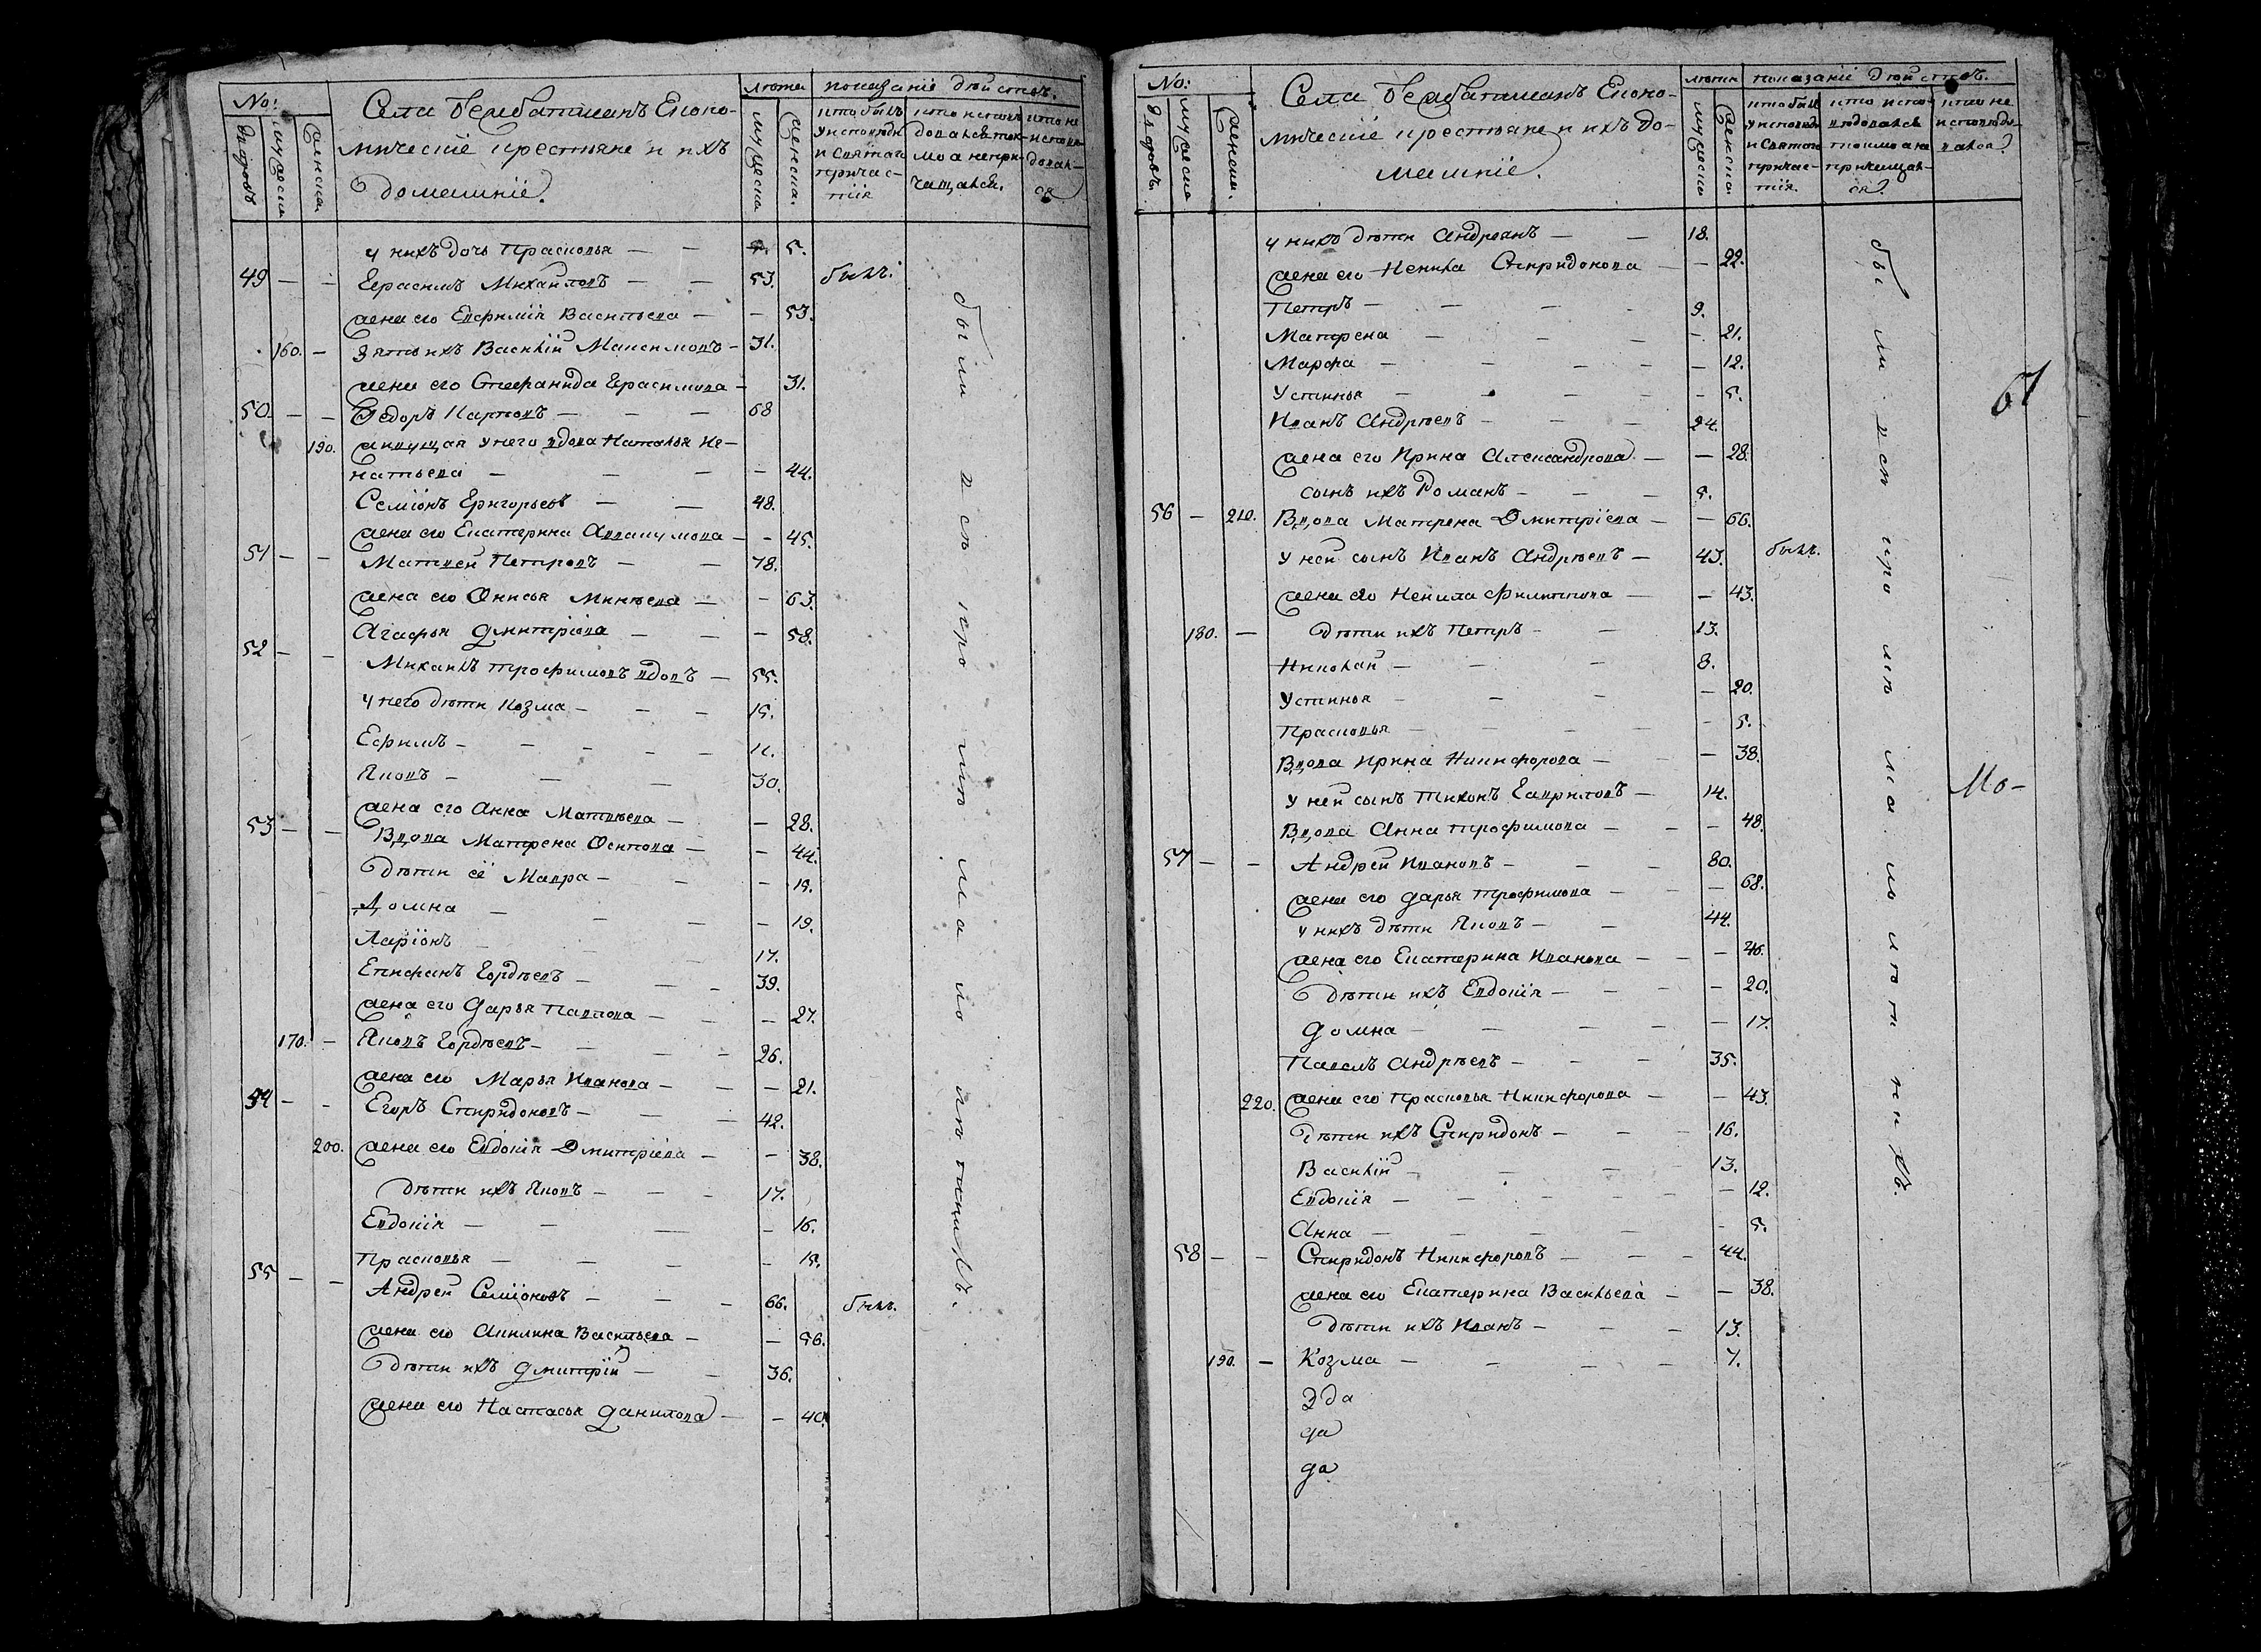 No:
Села Безабатманъ Еконо-
мическіе крестьяне и ихъ
домашніе.
лѣта
показаніе дѣйствъ.
дворовъ
мужеска
женска
мужеска
женска.
кто былъ
у исповѣди
и святаго
причас-
тія
кто исповѣ
довался ток-
мо а непри-
чащался.
кто не
исповѣ-
довал-
ся
у нихъ дочь Прасковья — — 5.
49 — — Герасимъ Михайловъ — — 53. былъ.
жена его Евфимія Васильева — — 53.
160. — Зять ихъ Василій Максимовъ — 31.
жена его Степанида Герасимова — 31.
50. — — Ѳедоръ Карповъ — — — 68
190. живущая у него вдова Наталья Иг-
натьева — — — — 44.
Семіонъ Григорьевъ — — 48.
жена его Екатерина — — 45.
51 — — Матвей Петровъ — — 78.
жена его Онисья Минѣева — — 63.
Агафья Дмитріева — — — 58.
52 — — Михаилъ Трофимовъ вдовъ — 55.
у него дѣти Козма — — — 15.
Ефимъ — — — — — 11.
Яковъ — — — 30.
жена его Анна Матвѣева — — 28.
53 — — Вдова Матрена Осипова — — 44.
Дѣти её Мавра — — — 19.
Домна — — — — 19.
Ларіонъ — — — 17.
Епифанъ Гордѣевъ — — — 39.
жена его Дарья Павлова — — — 27.
170. — Яковъ Гордѣевъ — — — — 26.
жена его Марья Иванова — — — 21.
54 — — Егоръ Спиридоновъ — — — 42.
200. жена его Евдокія Дмитріева — — 38.
дѣти ихъ Яковъ — — — 17.
Евдокія — — — — 16.
Прасковья — — — — 15.
55 — — Андрей Семіоновъ — — — 66. былъ.
жена его Акилина Васильева — — 56.
Дѣти ихъ Дмитрій — — 36.
жена его Настасья Данилова — — 40.
были всѣ кромѣ малолѣтнихъ.
No:
Села Безабатманъ Еконо-
мическіе крестьяне и ихъ до-
машніе.
лѣта
показаніе дѣйствъ.
дворовъ.
мужеска
женска.
мужеска
женска.
кто былъ
у исповѣди
и святаго
причас-
тія.
кто испо-
вѣдовался
токмо а не
причащал-
ся.
кто не
исповѣдо-
вался
у нихъ дѣти Андреянъ — — 18.
жена его Ненила Спиридонова — — 22.
Петръ — — — — 9.
Матрена — — — — 21.
Марфа — — — — — 12.
Устинья — — — — — 5.
Иванъ Андрѣевъ — — — 24.
жена его Ирина Александрова — — 28.
сынъ ихъ Романъ — — — 5.
56 — 210. Вдова Матрена Дмитріева — — 66.
у ней сынъ Иванъ Андрѣевъ — 43. былъ.
жена его Ненила Филиппова — — 43.
180. — Дѣти ихъ Петръ — — 13.
Николай — — — 8.
Устинья — — — — 20.
Прасковья — — — — — 5.
Вдова Ирина Никифорова — — — 38.
у ней сынъ Тихонъ Гавриловъ — 14.
Вдова Анна Трофимова — — — 48.
57 — — Андрей Ивановъ — — — 80.
жена его Дарья Трофимова — — — 68.
у нихъ дѣти Яковъ — — 44.
жена его Екатерина Иванова — — — 46.
Дѣти ихъ Евдокія — — — — 20.
Домна — — — — — 17.
Павелъ Андрѣевъ — — — 35.
220. жена его Прасковья Никифорова — — 43.
Дѣти ихъ Спиридонъ — — — 16.
Василій — — — — 13.
Евдокія — — — — — — 12.
Анна — — — — — — 5.
58 — — Спиридонъ Никифоровъ — — — 44.
жена его Екатерина Васильева — — 38.
Дѣти ихъ Иванъ — — — 13.
190. — Козма — — — — 7.
да
да
были всѣ кромѣ малолѣтнихъ.
61
Мо-